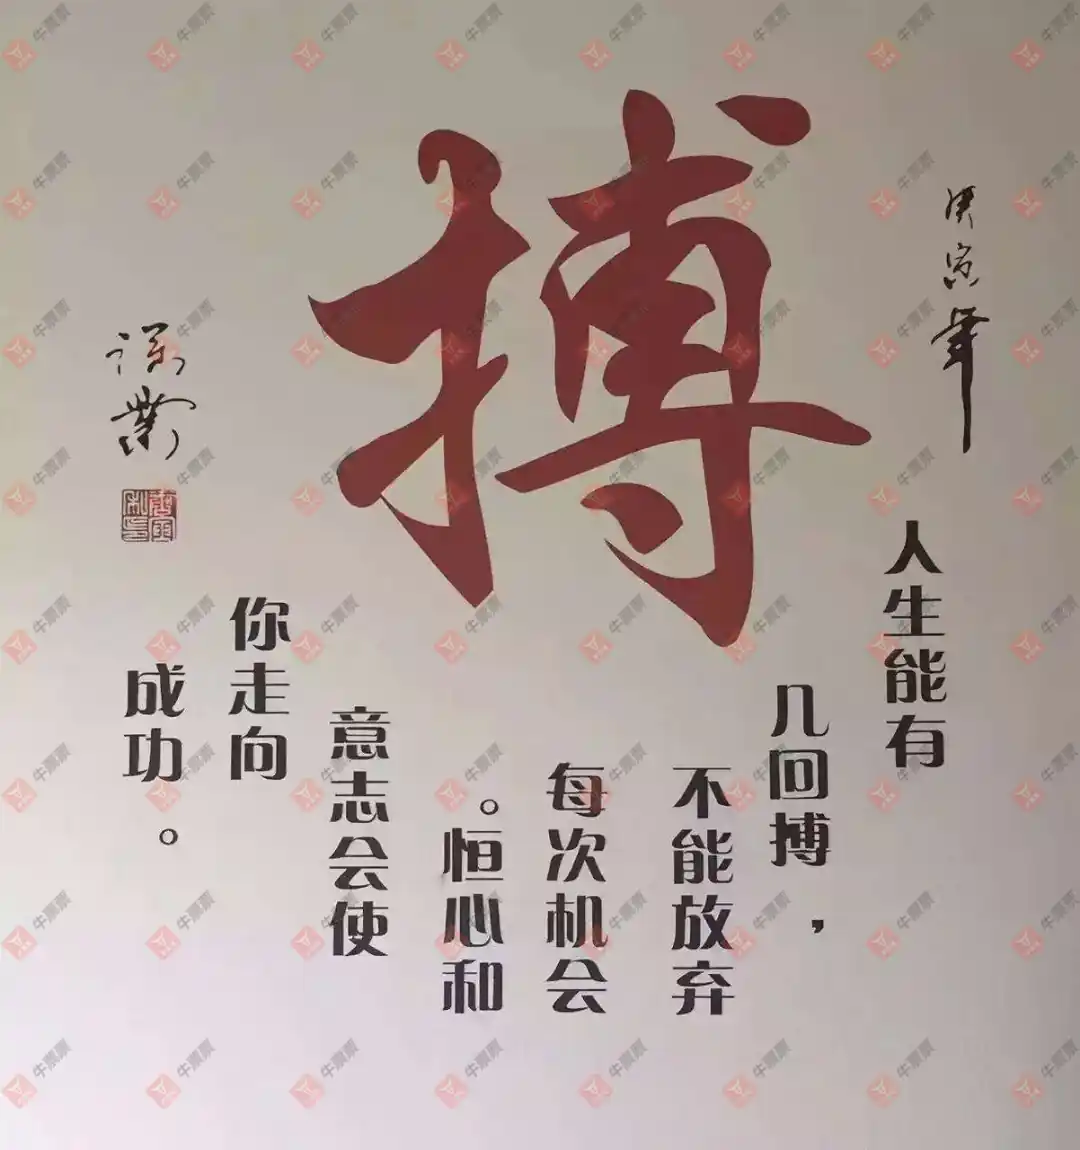 搏
庚寅年
人生能有
几回搏，
不能放弃
每次机会
。恒心和
意志会使
你走向
成功。
牛票票